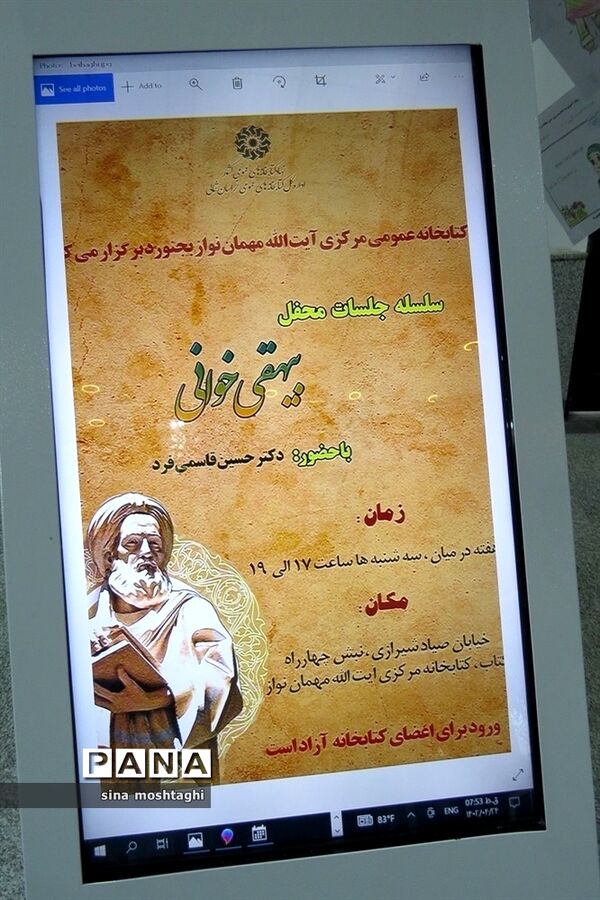 Photos - beihaghi.jpg
See all photos
Add to
نهاد کتابخانه‌های عمومی کشور
اداره کل کتابخانه‌های عمومی خراسان شمالی
کتابخانه عمومی مرکزی آیت الله مهمان نواز بجنورد برگزار می ک
سلسله جلسات محفل
بیهقی خوانی
باحضور: دکتر حسین قاسمی فرد
زمان :
هفته در میان ، سه شنبه ها ساعت ۱۷ الی ۱۹
مکان :
خیابان صیاد شیرازی ، نبش چهارراه
کتاب ، کتابخانه مرکزی ایت الله مهمان نواز
ورود برای اعضای کتابخانه آزاد است
PANA
sina moshtaghi
83°F
ENG
07:53 ق.ظ
۱۴۰۲/۰۴/۲۴